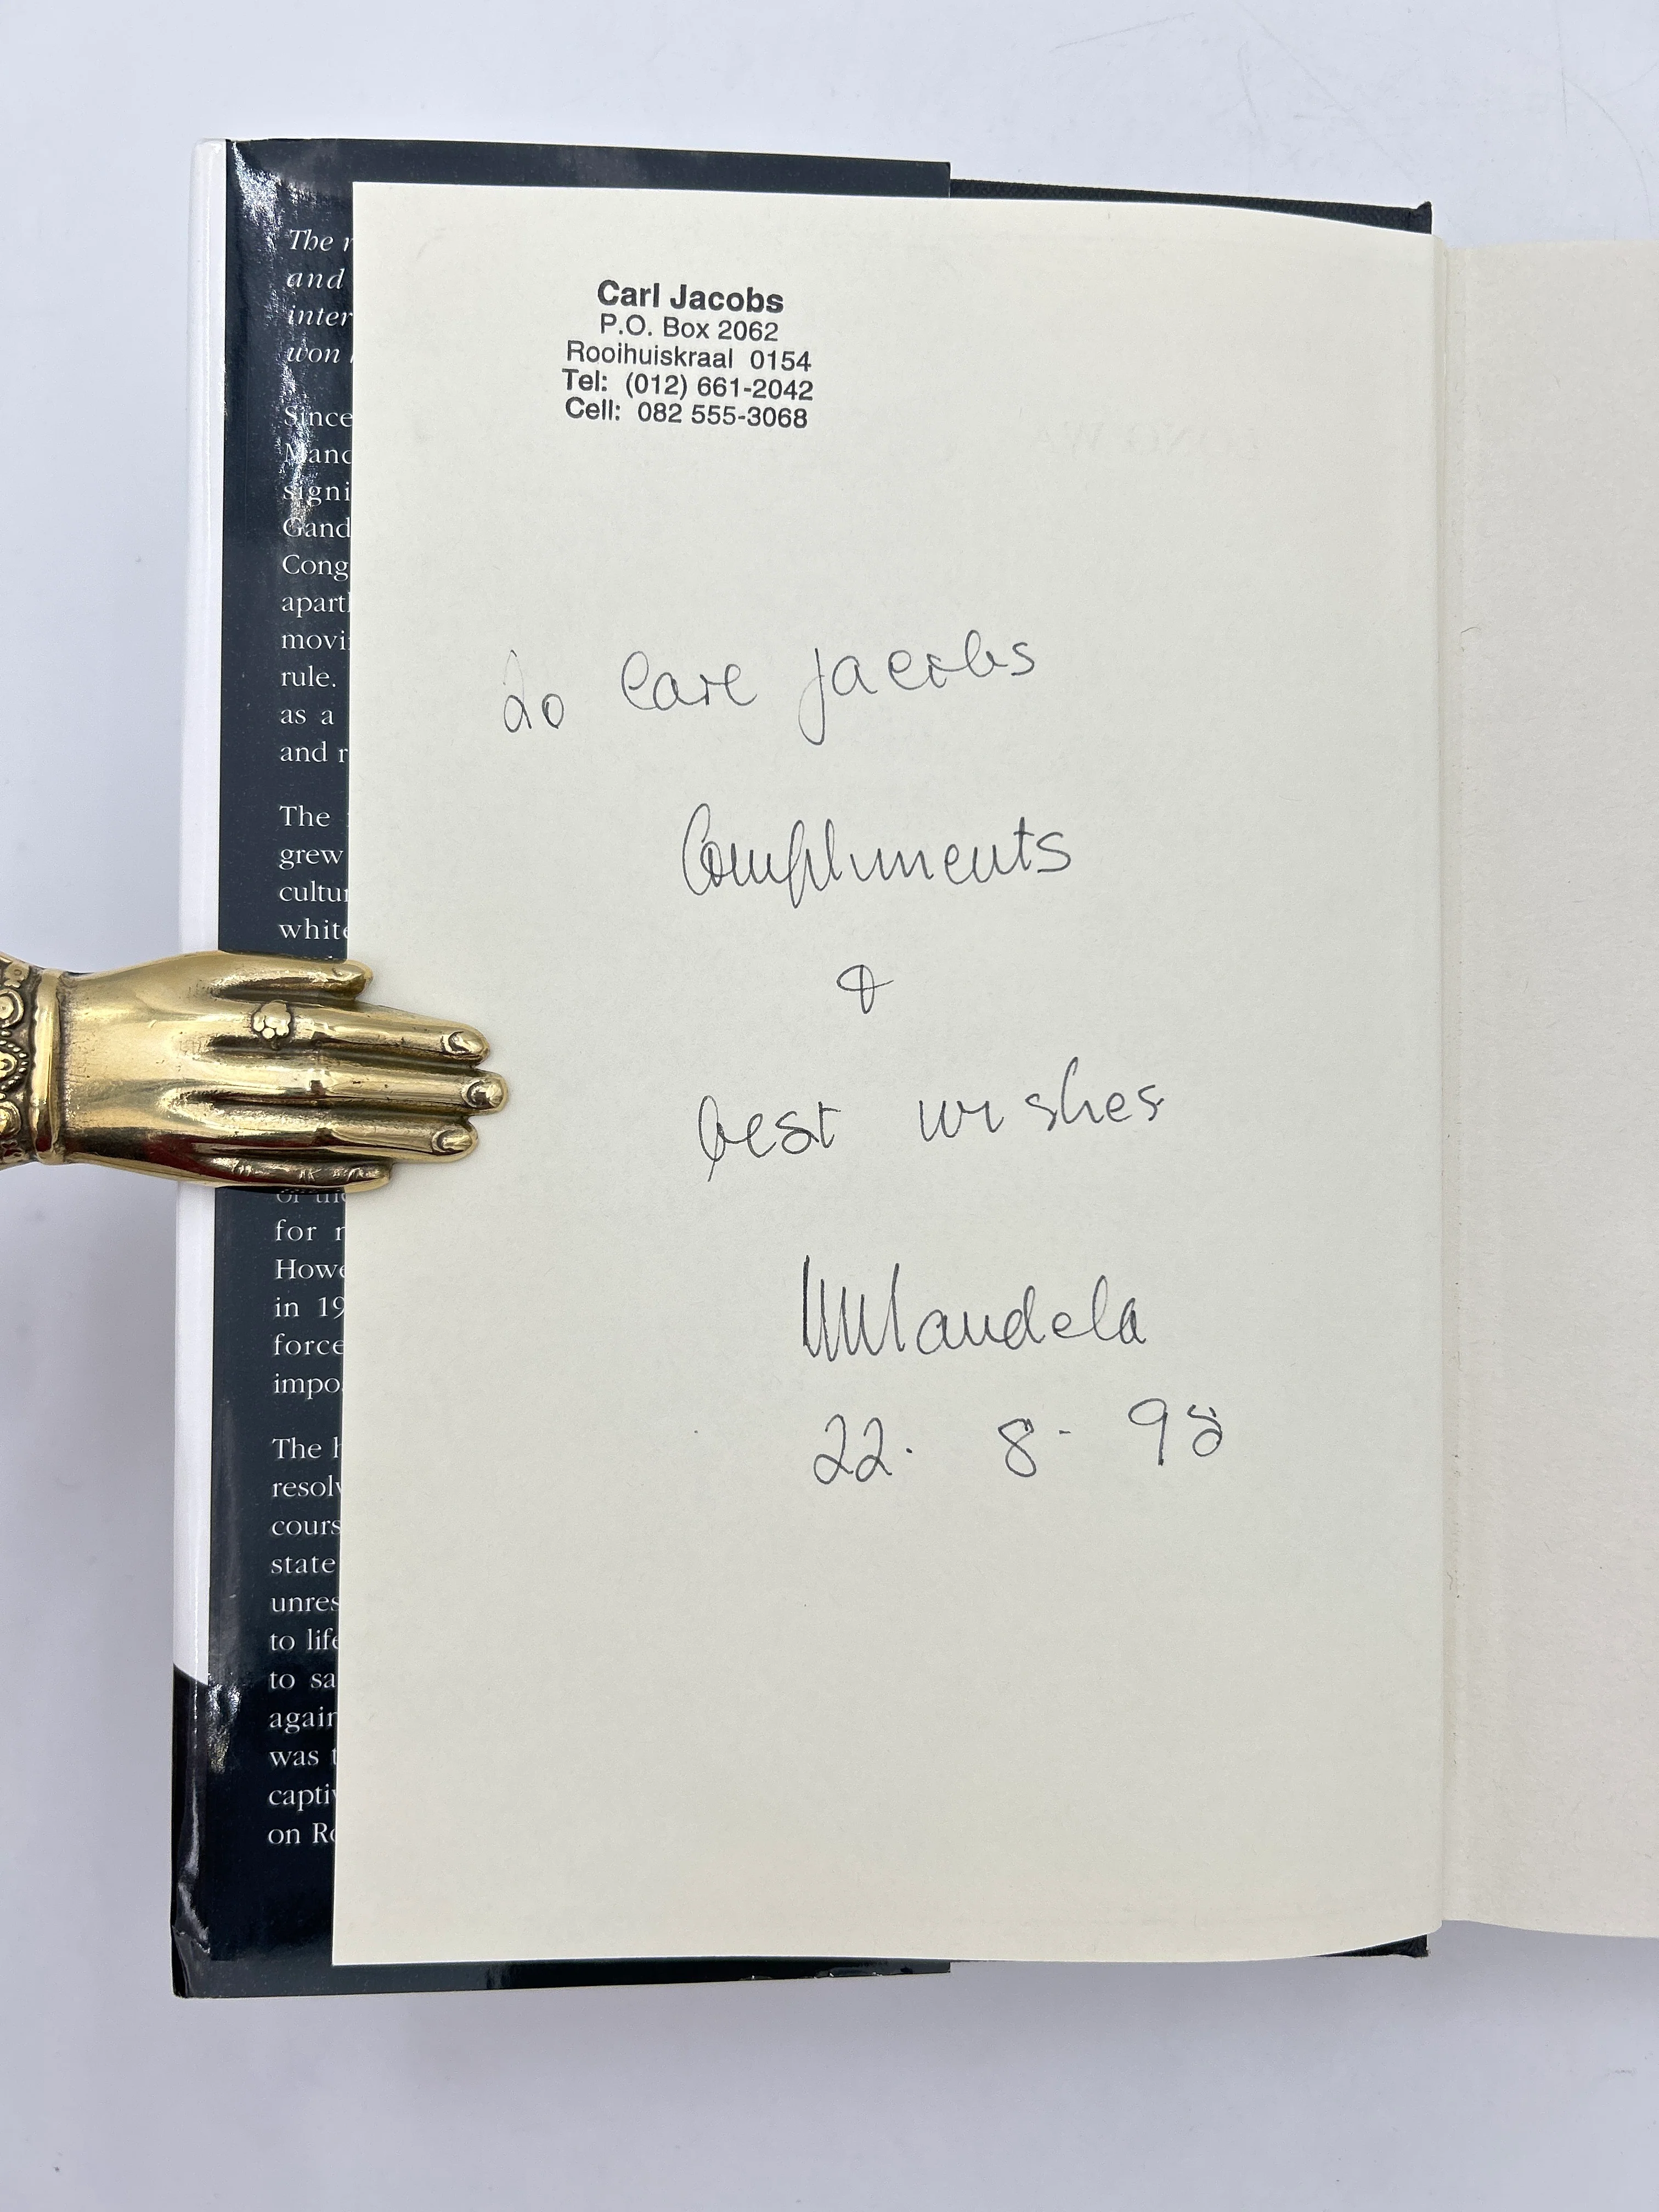 The r
and
inter
won
Since
Mand
signi
Gand
Cong
apart
movi
rule.
as a
and r
The
grew
cultur
white
for r
Howe
in 19
force
impo
The h
resolv
cours
state
unres
to life
to sa
again
was t
captiv
on Ro
Carl Jacobs
P.O. Box 2062
Rooihuiskraal 0154
Tel: (012) 661-2042
Cell: 082 555-3068
To Carl Jacobs
Compliments
&
best wishes
NMandela
22. 8. 98